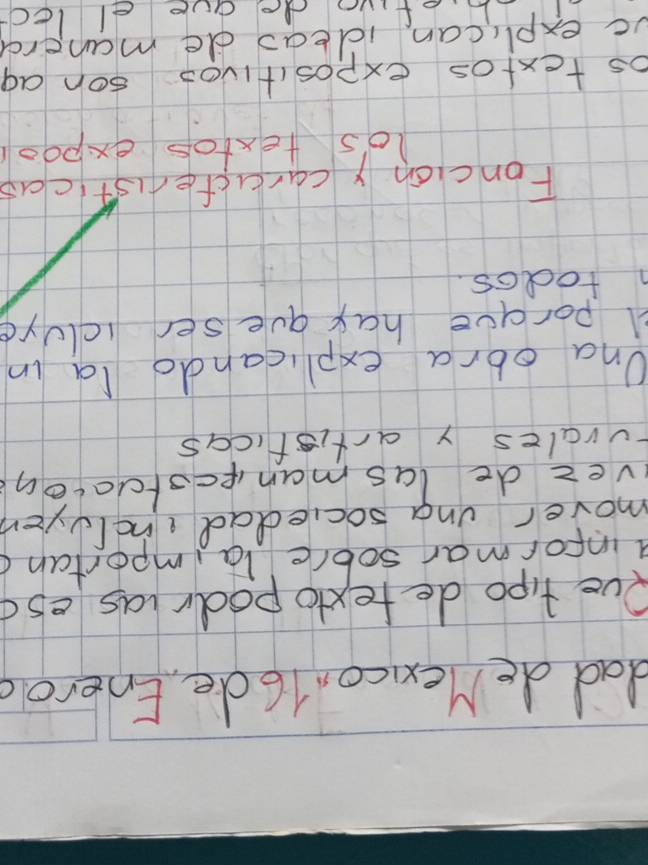 dad de Mexico 16 de Enero d
Que tipo de texto podrias esc
a informar sobre la importan c
mover una sociedad incluyen
vez de las manifestacion
turales y artisticas
Una obra explicando la in
el porque hay que ser icluye
n todos.
Foncion y caracteristicas
los textos exposi
os textos expositivos son aq
ve explican ideas de manera
objetivo de que el lect